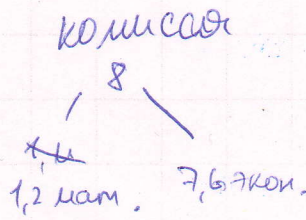 комиссия
8
1,2 мат. 7,6 экон.